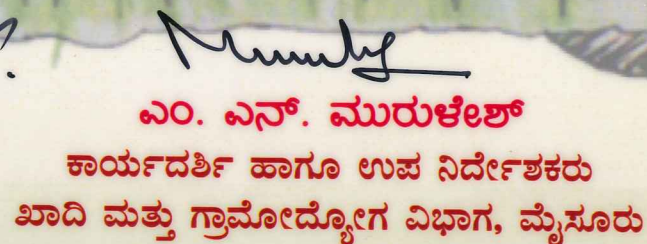 ಎಂ. ಎನ್. ಮುರುಳೇಶ್
ಕಾರ್ಯದರ್ಶಿ ಹಾಗೂ ಉಪ ನಿರ್ದೇಶಕರು
ಖಾದಿ ಮತ್ತು ಗ್ರಾಮೋದ್ಯೋಗ ವಿಭಾಗ, ಮೈಸೂರು